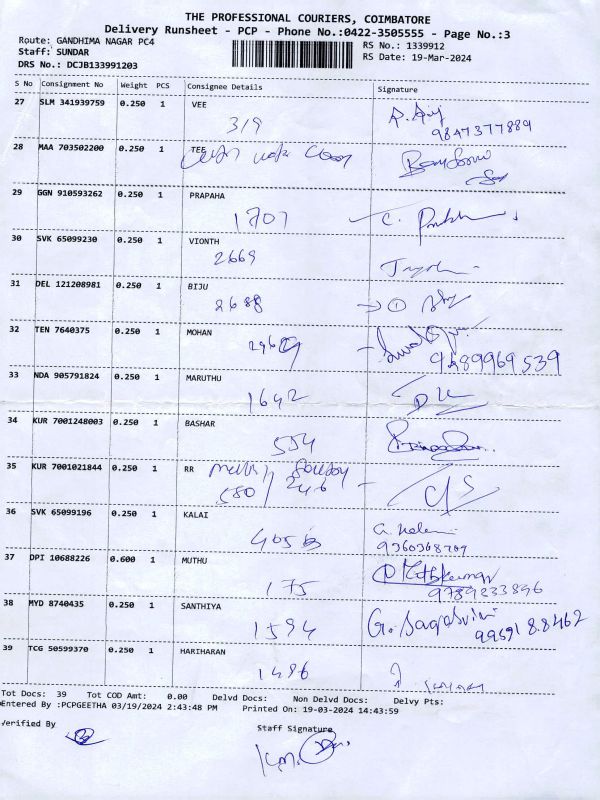 THE PROFESSIONAL COURIERS, COIMBATORE
Delivery Runsheet - PCP - Phone No.:0422-3505555 - Page No.:3
Route: GANDHIMA NAGAR PC4 RS No.: 1339912
Staff: SUNDAR RS Date: 19-Mar-2024
DRS No.: DCJB133991203
S No Consignment No Weight PCS Consignee Details Signature
27 SLM 341939759 0.250 1 VEE
319 9847377889
28 MAA 703502200 0.250 1 TEE
29 GGN 910593262 0.250 1 PRAPAHA
1707 C.
30 SVK 65099230 0.250 1 VIONTH
2669
31 DEL 121208981 0.250 1 BIJU
2688 1
32 TEN 7640375 0.250 1 MOHAN
9489969539
33 NDA 905791824 0.250 1 MARUTHU
1642
34 KUR 7001248003 0.250 1 BASHAR
554
35 KUR 7001021844 0.250 1 RR
580/ 246
36 SVK 65099196 0.250 1 KALAI
405 B
37 DPI 10688226 0.600 1 MUTHU
175 9789233896
38 MYD 8740435 0.250 1 SANTHIYA
1594 G.
39 TCG 50599370 0.250 1 HARIHARAN
1496
Tot Docs: 39 Tot COD Amt: 0.00 Delvd Docs: Non Delvd Docs: Delvy Pts:
Entered By :PCPGEETHA 03/19/2024 2:43:48 PM Printed On: 19-03-2024 14:43:59
Verified By Staff Signature